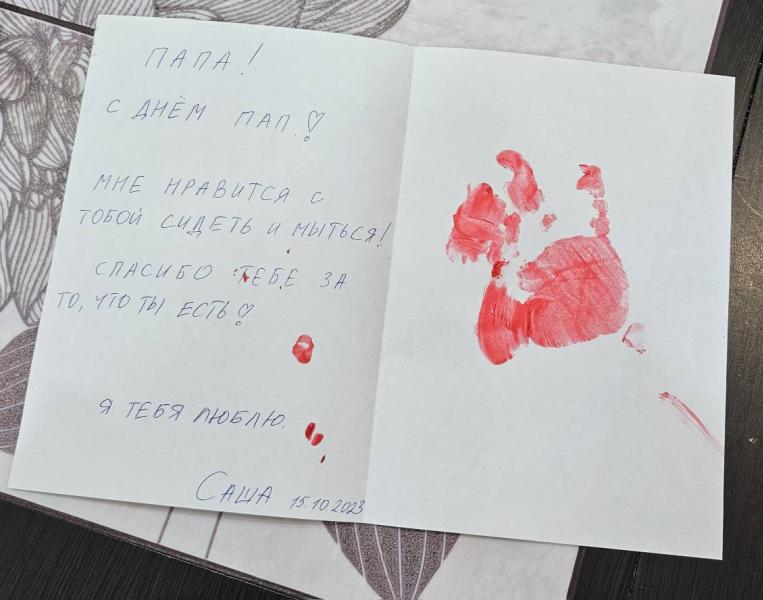 ПАПА!
С ДНЁМ ПАП!
МНЕ НРАВИТСЯ С
ТОБОЙ СИДЕТЬ И МЫТЬСЯ!
СПАСИБО ТЕБЕ ЗА
ТО, ЧТО ТЫ ЕСТЬ!
Я ТЕБЯ ЛЮБЛЮ.
САША 15.10.2023